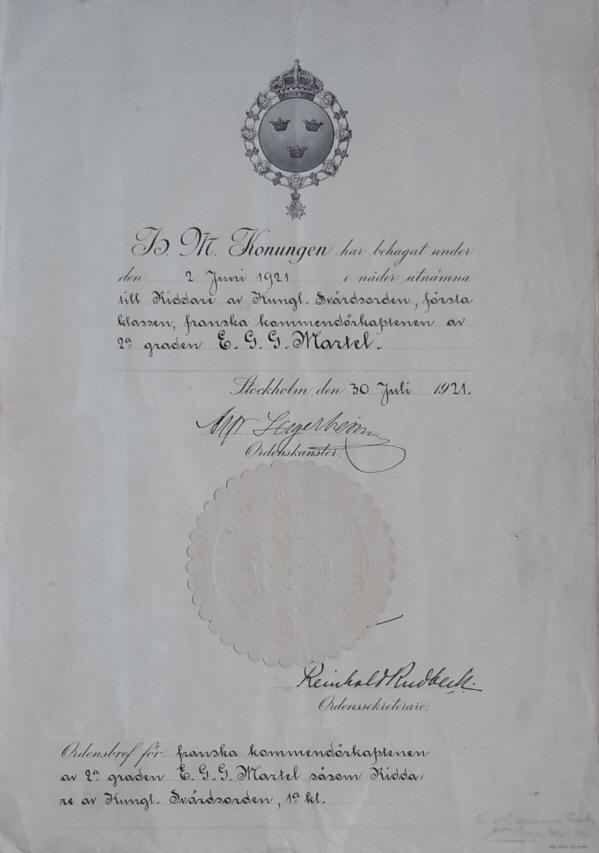 H. M. Konungen har behagat under
den 2 Juni 1921 i nåder utnämna
till Riddare av Kungl. Svärdsorden, första
klassen, franska kommendörkaptenen av
2a graden E. G. G. Martel.
Stockholm den 30 Juli 1921.
Ordenskansler.
Reinhold Rudbeck.
Ordenssekreterare.
Ordensbref för franska kommendörkaptenen
av 2a graden E. G. G. Martel såsom Ridda-
re av Kungl. Svärdsorden, 1a kl.